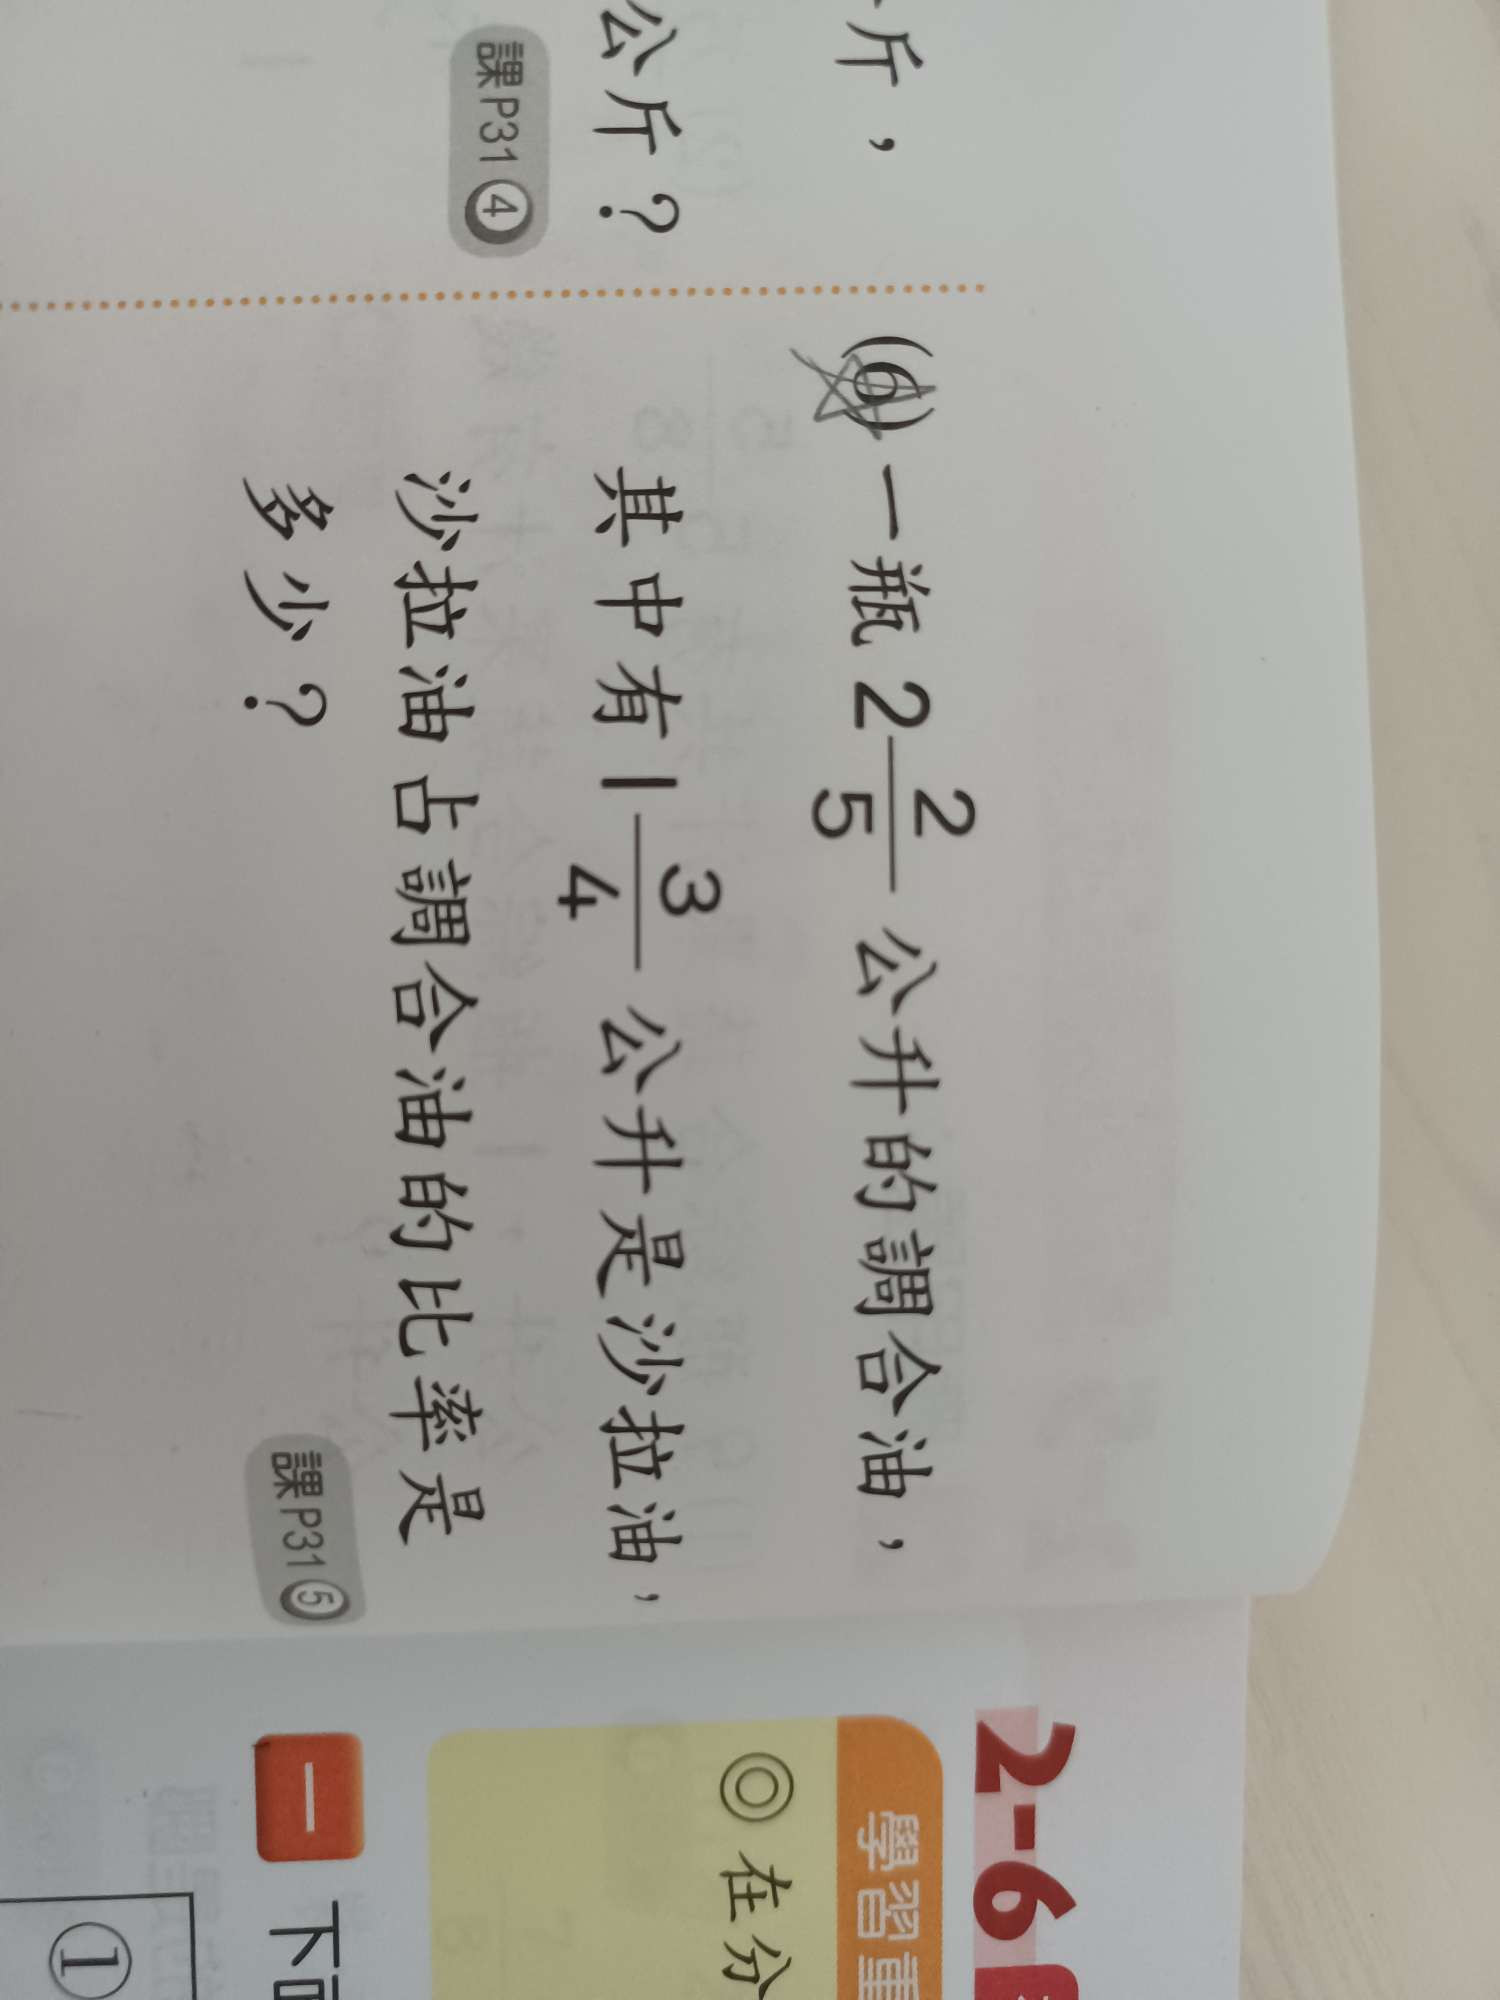 斤，
公斤？
課P31④
(6)一瓶2 2/5 公升的調合油，
其中有1 3/4 公升是沙拉油，
沙拉油占調合油的比率是
多少？
課P31⑤
2-6
學習重
◎在分
一 下
①